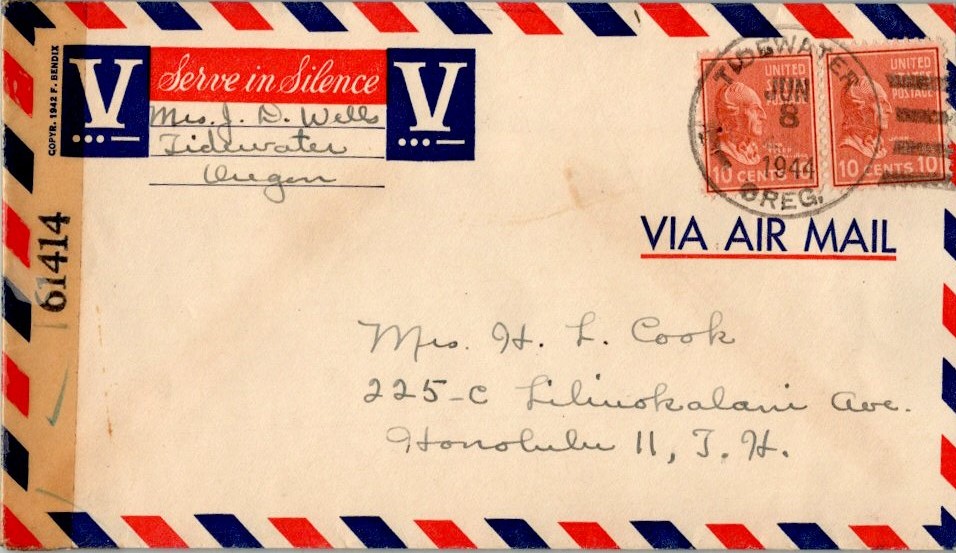 COPYR. 1942 F. BENDIX
V Serve in Silence V
Mrs. J. D. Wells
Tidewater
Oregon
TIDEWATER
JUN
8
1944
OREG.
UNITED
POSTAGE
10 CENTS 10
UNITED
POSTAGE
10 CENTS 10
VIA AIR MAIL
61414
Mrs. H. L. Cook
225-C Liliuokalani Ave.
Honolulu 11, T. H.